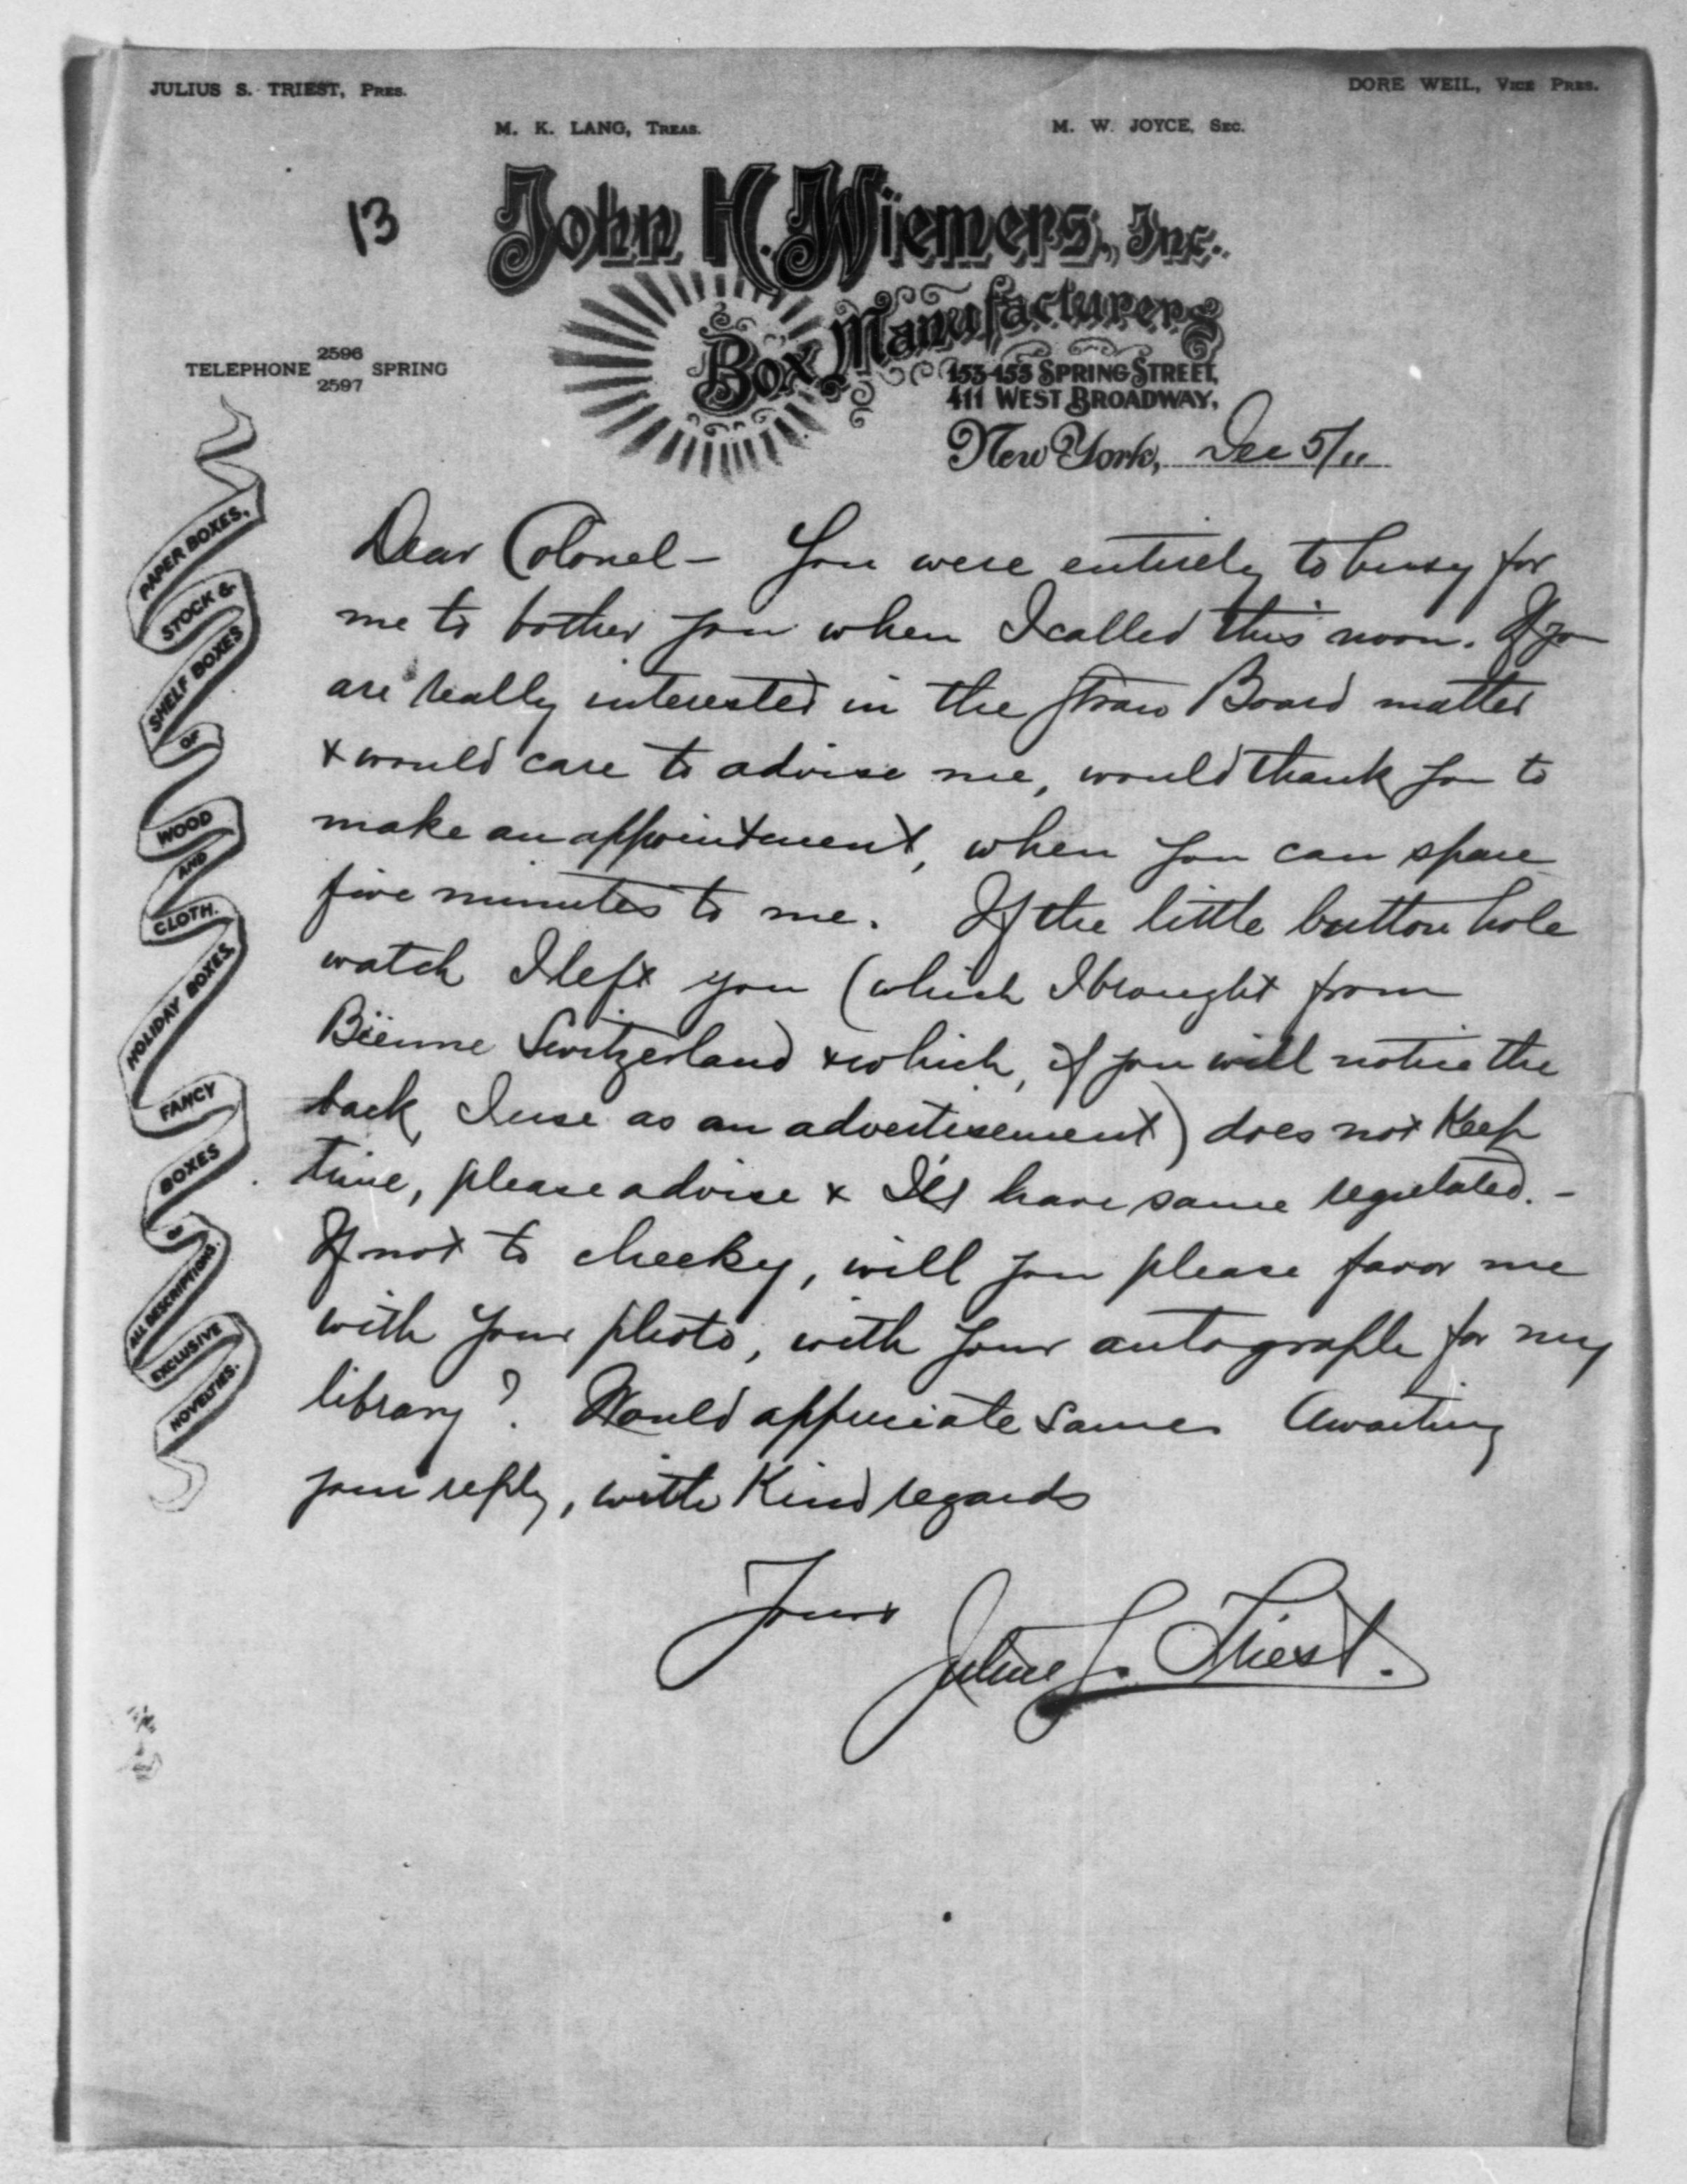 JULIUS S. TRIEST, PRES.
DORE WEIL, VICE PRES.
M. K. LANG, TREAS.
M. W. JOYCE, SEC.
13
John H. Wiemers, Inc.
Box Manufacturers
153-155 SPRING STREET,
411 WEST BROADWAY,
TELEPHONE 2596 2597 SPRING
New York, Dec 5/11
PAPER BOXES,
STOCK &
SHELF BOXES
OF
WOOD
AND
CLOTH.
HOLIDAY BOXES,
FANCY
BOXES
OF
ALL DESCRIPTIONS.
EXCLUSIVE
NOVELTIES.
Dear Colonel - You were entirely to busy for
me to bother you when I called this noon. If you
are really interested in the Straw Board matter
& would care to advise me, would thank you to
make an appointment, when you can spare
five minutes to me. If the little button hole
watch I left you (which I brought from
Bienne Switzerland & which, if you will notice the
back, I use as an advertisement) does not keep
time, please advise & I'll have same regulated. -
If not to cheeky, will you please favor me
with your photo, with your autograph for my
library? Would appreciate same. Awaiting
your reply, with Kind regards
Yours
Julius S. Triest.